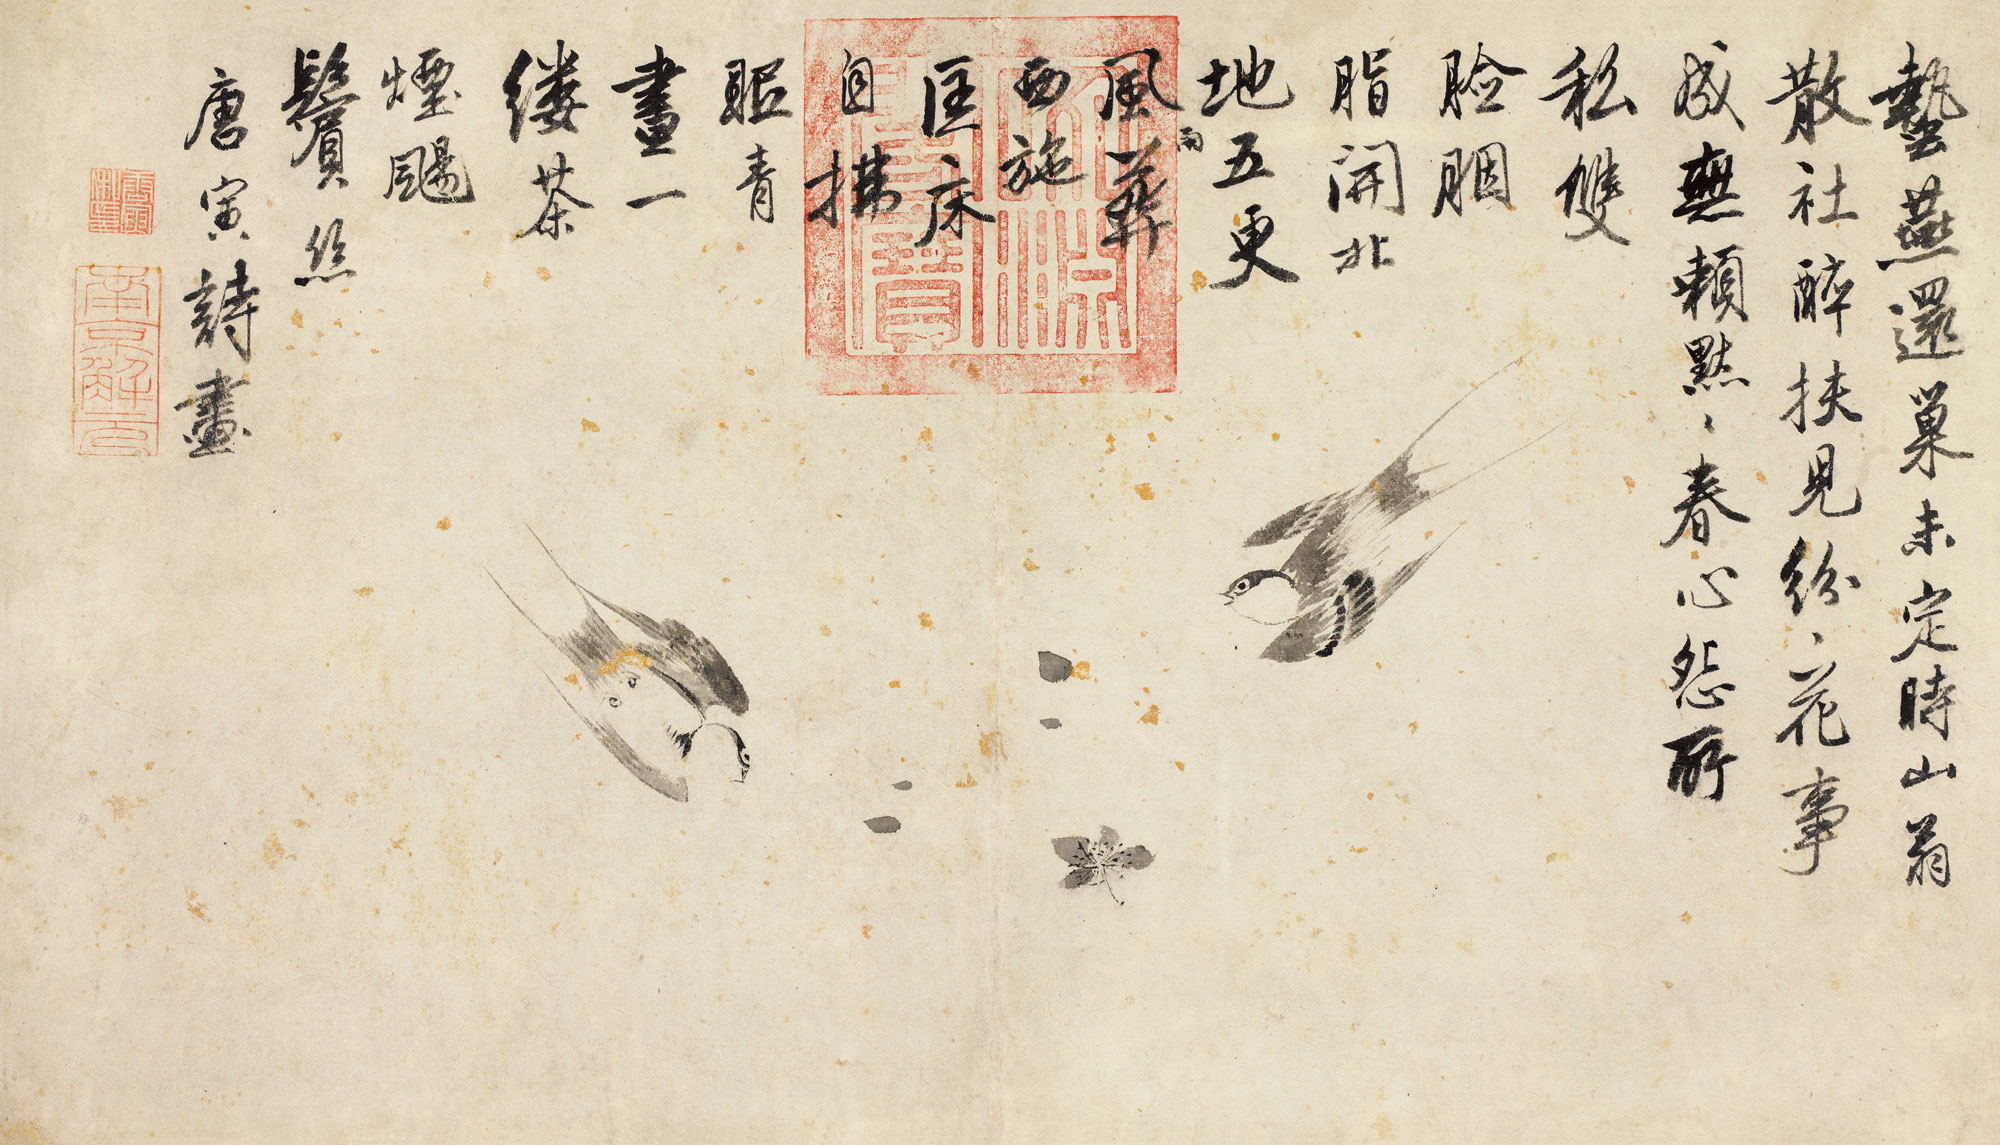 藝燕還巢未定時山翁
散社醉扶兒紛紛花事
成無賴默默春心怨所
私雙
臉胭
脂開北
地五更
風雨葬
西施
匡床
自拂
眠青
晝一
縷茶
煙颺
鬢絲
唐寅詩畫
南京解元